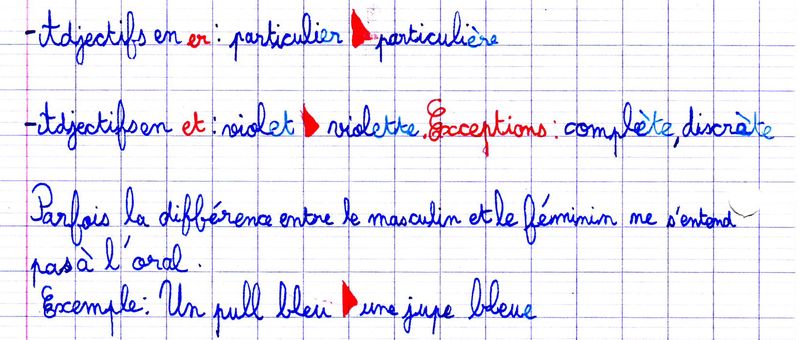 -Adjectifs en er : particulier ▶ particulière
-Adjectifs en et : violet ▶ violette. Exceptions : complète, discrète
Parfois la différence entre le masculin et le féminin ne s'entend
pas à l'oral.
Exemple : Un pull bleu ▶ une jupe bleue